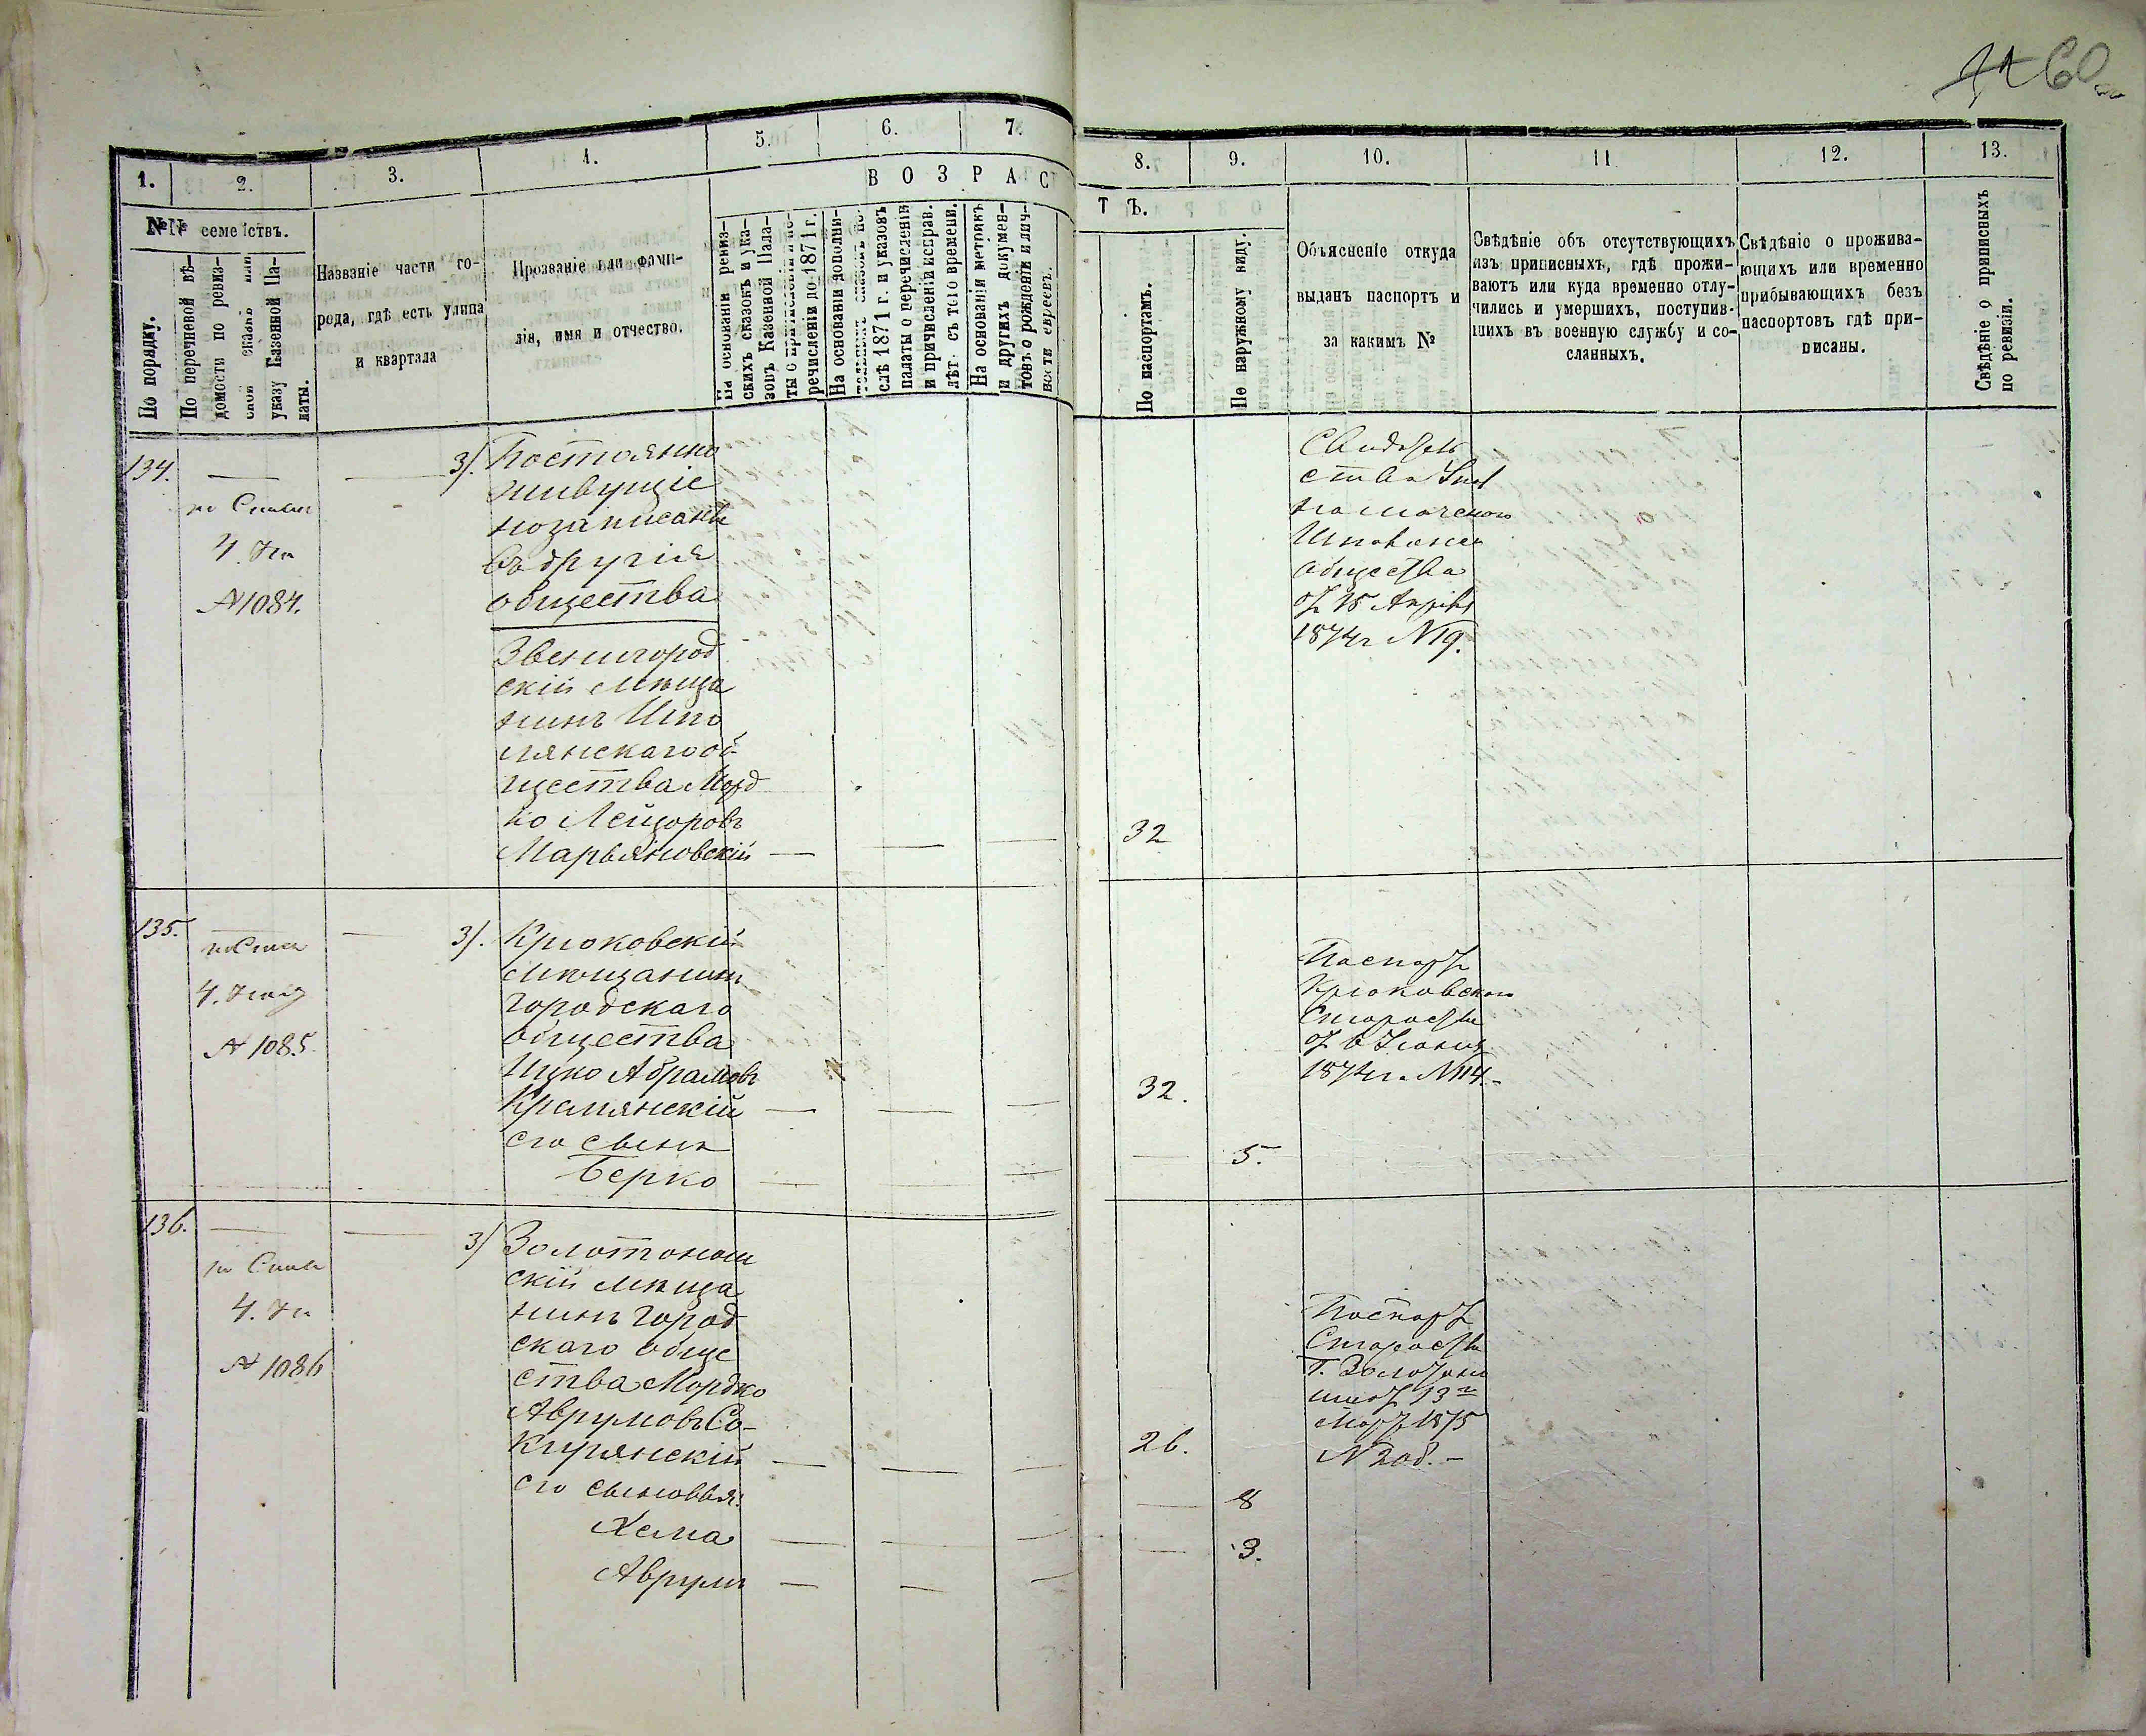 60
1.
2.
3.
4.
5.
6.
7.
8.
9.
10.
11.
12.
13.
В О З Р А С
Т Ъ.
№№ семействъ.
По порядку.
По перечневой вѣ-
домости по ревиз-
ской сказкѣ или
указу Казенной Па-
латы.
Названіе части го-
рода, гдѣ есть улица
и квартала
Прозваніе или фами-
лія, имя и отчество.
На основаніи ревиз-
скихъ сказокъ и ука-
зовъ Казенной Пала-
ты о
речисленіи до 1871 г.
На основаніи дополни-
слѣ 1871 г. и указовъ
палаты о перечисленіи
и причисленіи исправ.
лѣт. съ того времени.
На основаніи метрикъ
и другихъ докумен-
товъ о рожденіи и лич-
ности евреевъ.
По паспортамъ.
По наружному виду.
Объясненіе откуда
выданъ паспортъ и
за какимъ №
Свѣдѣніе объ отсутствующихъ
изъ приписныхъ, гдѣ прожи-
ваютъ или куда временно отлу-
чились и умершихъ, поступив-
шихъ въ военную службу и со-
сланныхъ.
Свѣдѣніе о прожива-
ющихъ или временно
прибывающихъ безъ
паспортовъ гдѣ при-
писаны.
Свѣдѣніе о приписныхъ
по ревизіи.
134.
4.
№ 1084.
3). Постоянно
живущіе
но записанн
въ другія
общества
Звенигород
скій мѣща
нинъ Шпо
лянскаго об
щества Морд
ко Лейзоровъ
Марьяновскій
32
Свидѣтель
ства
Шполянск
общества
от 15 Апрѣля
1874 г № 19.
135.
4.
№ 1085
3). Крюковскій
мѣщанинъ
городскаго
общества
Ицко Абрамовъ
Кремянскій
его сынъ
Берко
32.
5.
Паспорт
Крюковского
Старосты
1874 г. № 114.
136.
4.
№ 1086
3) Золотонош
скій мѣща
нинъ город
скаго обще
ства Мордко
Аврумовъ Со-
кирянскій
его сыновья:
Хема
Аврумъ
26.
8
3.
Паспорт
Старосты
Г. Золотоно
ши от 13го
Март 1875
№ 208.